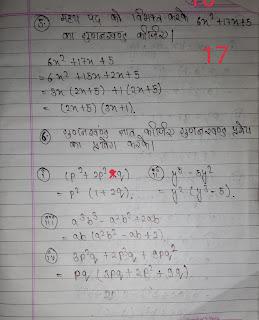 5. मध्य पद को विभक्त करके 6x² + 17x + 5
का गुणनखण्ड कीजिए।
17
6x² + 17x + 5
= 6x² + 15x + 2x + 5
= 3x (2x+5) +1 (2x+5)
= (2x+5) (3x+1).
6. गुणनखण्ड ज्ञात कीजिए गुणनखण्ड प्रमेय
का प्रयोग करके।
(p² + 2p² q) y³ - 5y²
= p² (1 + 2q). = y² (y - 5).
(iii) a³b³ - a²b² + 2ab
= ab (a²b² - ab + 2)
(iv) 3p²q + 2p³q + 9pq²
= pq (3p + 2p² + 9q)